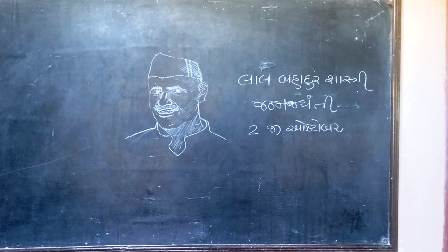 લાલ બહાદુર શાસ્ત્રી
જન્મજયંતી
2 જી ઓક્ટોબર